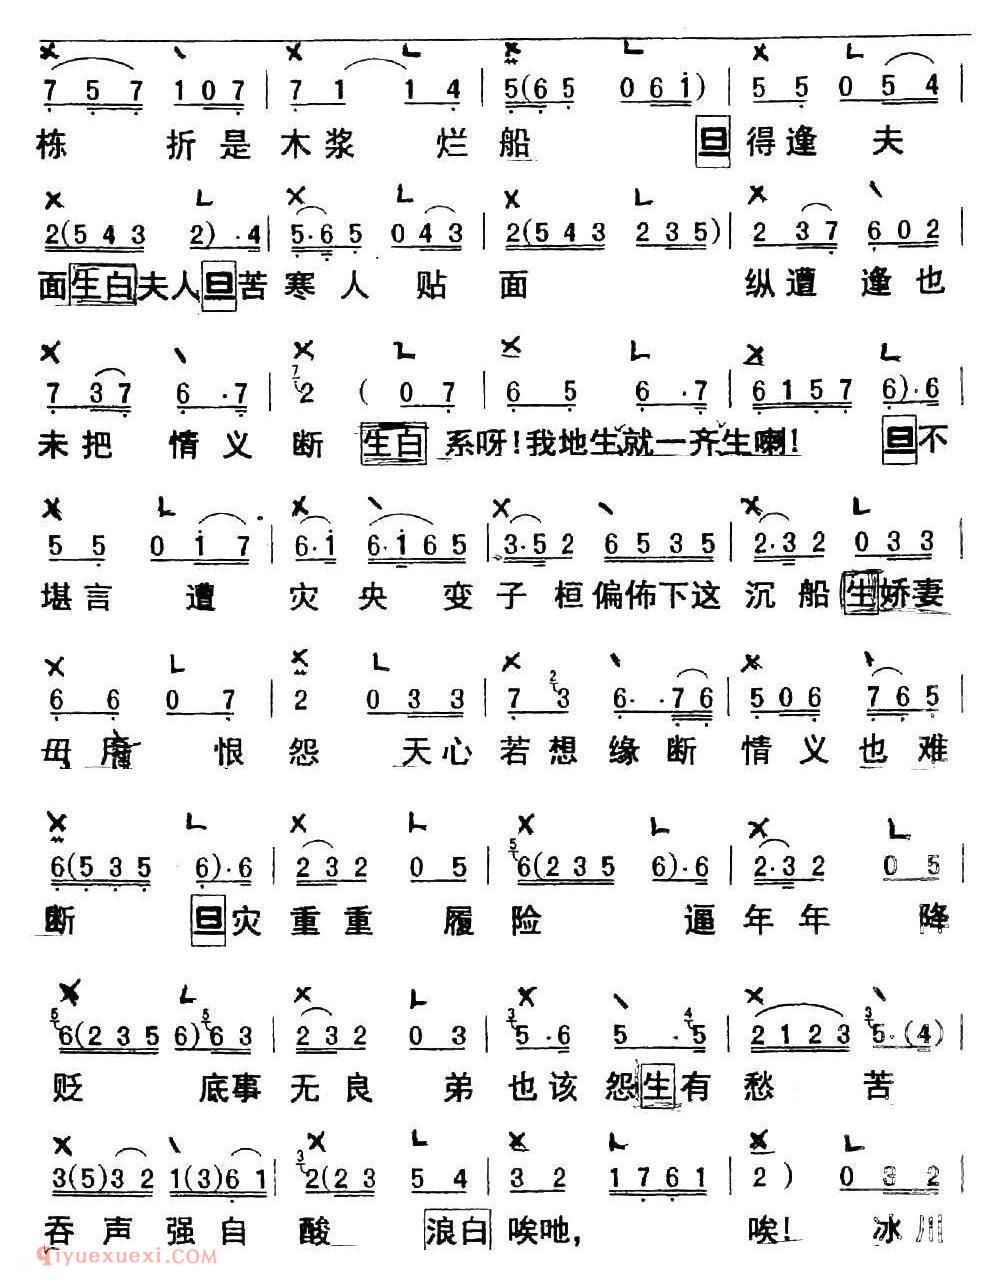 7 5 7 1 0 7 | 7 1 1 4 | 5(6 5 0 6 i) | 5 5 0 5 4 |
栋 折是木浆 烂船 旦得逢 夫
2(5 4 3 2)·4 | 5·6 5 0 4 3 | 2(5 4 3 2 3 5) | 2 3 7 6 0 2 |
面生白夫人旦苦寒人 贴 面 纵遭 逢也
7 3 7 6·7 | 2 ( 0 7 | 6 5 6·7 | 6 1 5 7 6)·6 |
未把 情义断 生白 系呀!我地生就一齐生喇! 旦不
5 5 0 i 7 | 6·i 6·i 6 5 | 3·5 2 6 5 3 5 | 2·3 2 0 3 3 |
堪言 遭 灾 央 变子桓偏佈下这 沉 船 生娇妻
6 6 0 7 | 2 0 3 3 | 7 3 6··7 6 | 5 0 6 7 6 5 |
毋 恨 怨 天心若想缘断 情义也难
6(5 3 5 6)·6 | 2 3 2 0 5 | 6(2 3 5 6)·6 | 2·3 2 0 5 |
断 旦灾重重 履 险 逼年年 降
6(2 3 5 6) 6 3 | 2 3 2 0 3 | 5·6 5·5 | 2 1 2 3 5·(4) |
贬 底事无良 弟 也该怨生有愁 苦
3(5)3 2 1(3)6 1 | 2(2 3 5 4 | 3 2 1 7 6 1 | 2 ) 0 3 2 |
吞声强自 酸 浪白唉吔, 唉! 冰川
qiyuexuexi.com